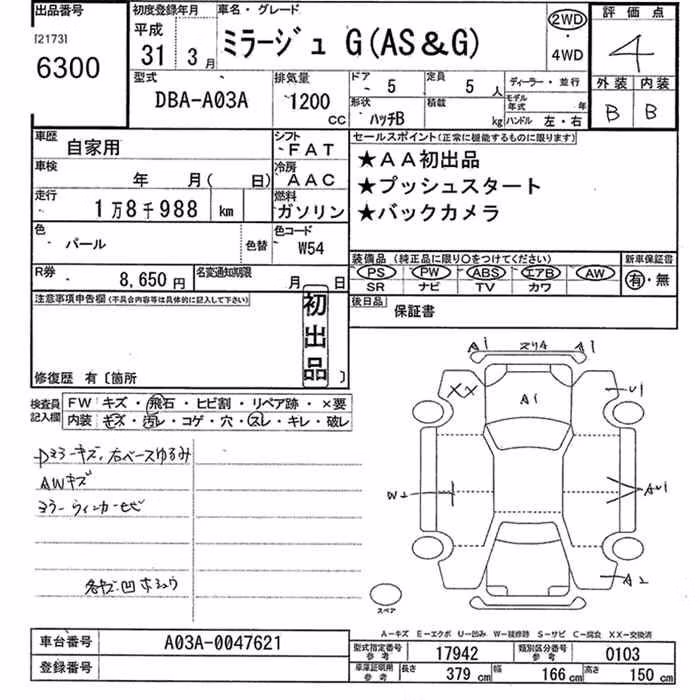 出品番号
[2173]
6300
初度登録年月
平成
31 3月
車名・グレード
ミラージュ G(AS&G)
2WD
・
4WD
評価点
4
外装 内装
B B
型式
DBA-A03A
排気量
1200
CC
ドア
5
定員
5人
形状
ハッチB
積載
kg
ディーラー・並行
モデル年式 年
ハンドル 左・右
車歴
自家用
シフト
FAT
車検
年 月( 日)
冷房
AAC
走行
1万8千988 km
燃料
ガソリン
色
パール
色替
色コード
W54
R券
8,650円
名変通知期限
月 日
セールスポイント(正常に機能するものに限ります)
★AA初出品
★プッシュスタート
★バックカメラ
装備品(純正品に限り○をつけてください)
PS PW ABS エアB AW
SR ナビ TV カワ
新車保証書
有・無
後日品
保証書
注意事項申告欄(不具合内容等は具体的に記入して下さい)
初出品
修復歴 有〔箇所 〕
検査員記入欄
FW キズ・飛石・ヒビ割・リペア跡・×要
内装 キズ・汚レ・コゲ・穴・スレ・キレ・破レ
Dミラーキズ、右ベースゆるみ
AWキズ
ミラーウィンカーセビ
各キズ凹ホシュウ
A1 スリキ A1
XX
A1
U1
W2
AU1
A2
スペア
A-キズ E-エクボ U-凹み W-補修跡 S-サビ C-腐食 XX-交換済
車台番号
A03A-0047621
登録番号
型式指定番号参考
17942
類別区分番号参考
0103
車庫証明用参考
長さ 379 cm
幅 166 cm
高さ 150 cm